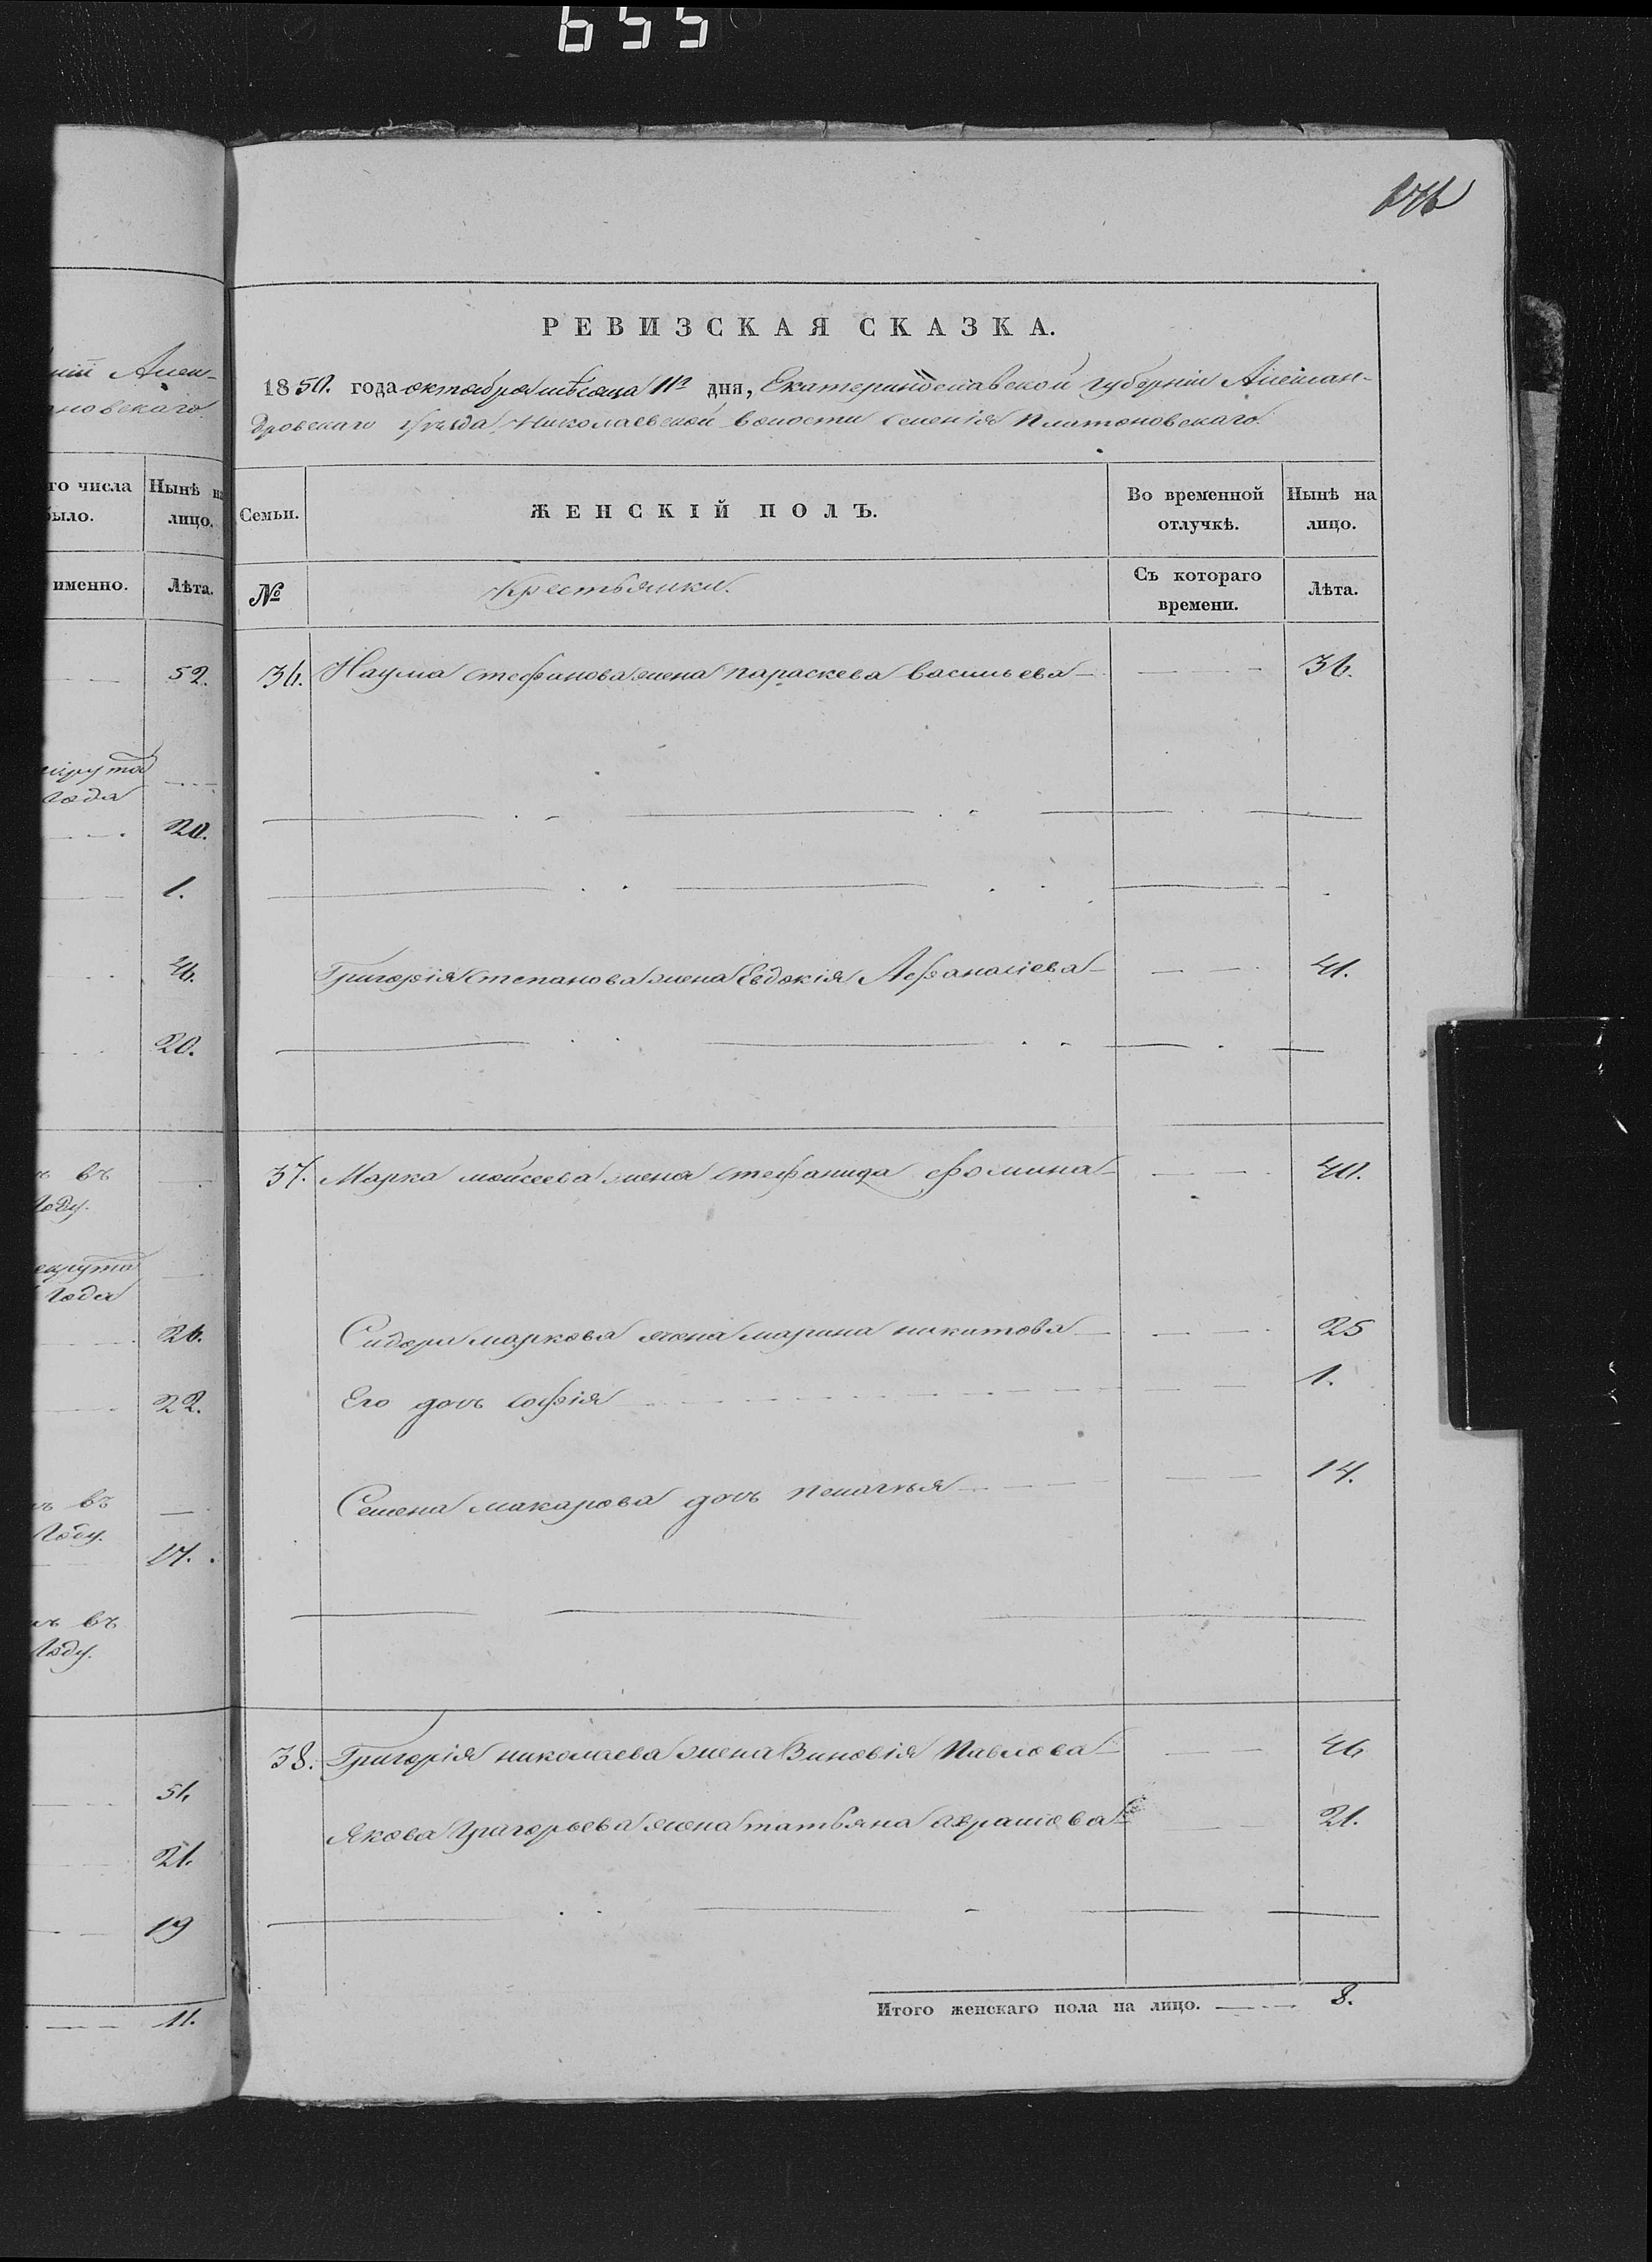 655
РЕВИЗСКАЯ СКАЗКА.
1850. года октября мѣсяца 11го дня, Екатеринославской губерніи Алексан-
дровскаго уѣзда Николаевской волости селенія Платоновскаго.
Семьи.
ЖЕНСКІЙ ПОЛЪ.
Во временной отлучкѣ.
Нынѣ на лицо.
№
Крестьянки.
Съ котораго времени.
Лѣта.
36. Наума Стефанова жена Параскева Васильева 36.
Григорія Степанова жена Евдокія Афанасіева 41.
37. Марка Моисеева жена Стефанида Фомина 40.
Сидора Маркова жена Марина Никитова 25
Его дочь Софія 1.
Семена Макарова дочь Пелагѣя 14.
38. Григорія Николаева жена Зиновія Павлова 46
Якова Григорьева жена Татьяна Абрамова 21.
Итого женскаго пола на лицо. 8.
го числа
было.
Нынѣ на
лицо.
именно.
Лѣта.
52.
года
20.
1.
46.
20.
въ
году.
года
26.
22.
въ
году.
17.
въ
году.
51.
21.
19
11.